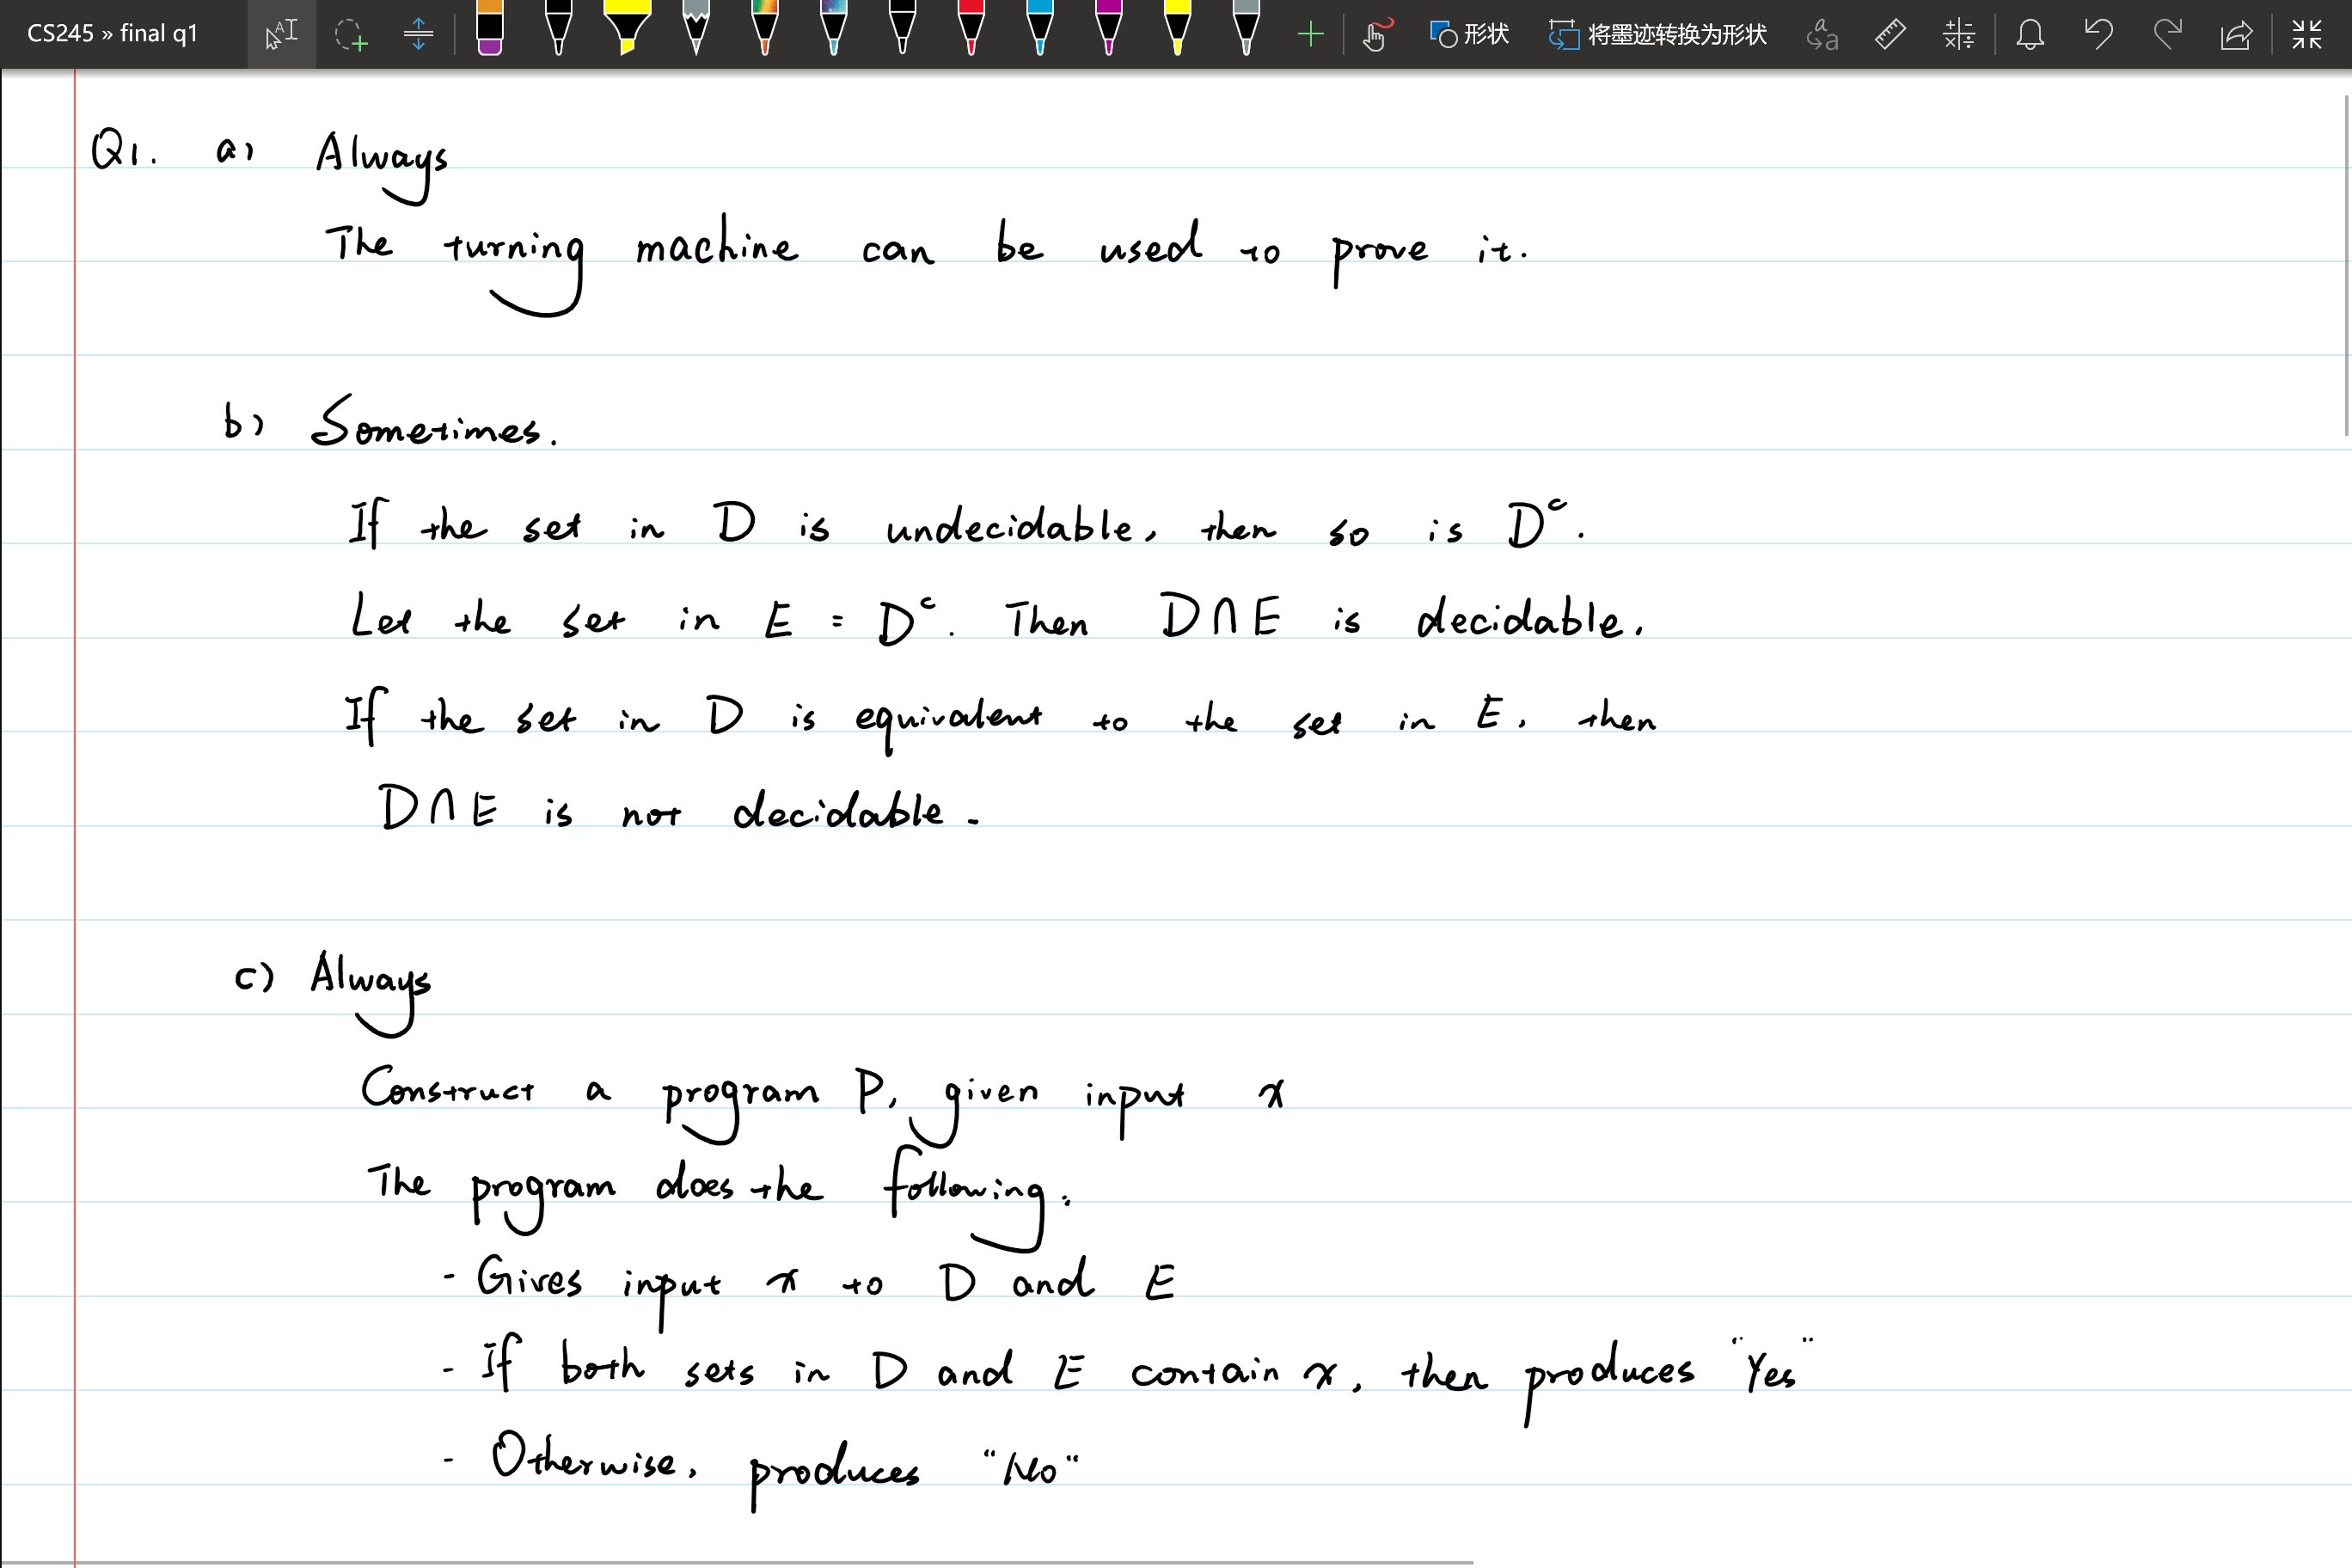 CS245 » final q1
形状
将墨迹转换为形状
Q1. a) Always
The turning machine can be used to prove it.
b) Sometimes.
If the set in D is undecidable, then so is Dᶜ.
Let the set in E = Dᶜ. Then D∩E is decidable.
If the set in D is equivalent to the set in E, then
D∩E is not decidable.
c) Always
Construct a program P, given input x
The program does the following:
- Gives input x to D and E
- If both sets in D and E contain x, then produces "Yes"
- Otherwise, produces "No"